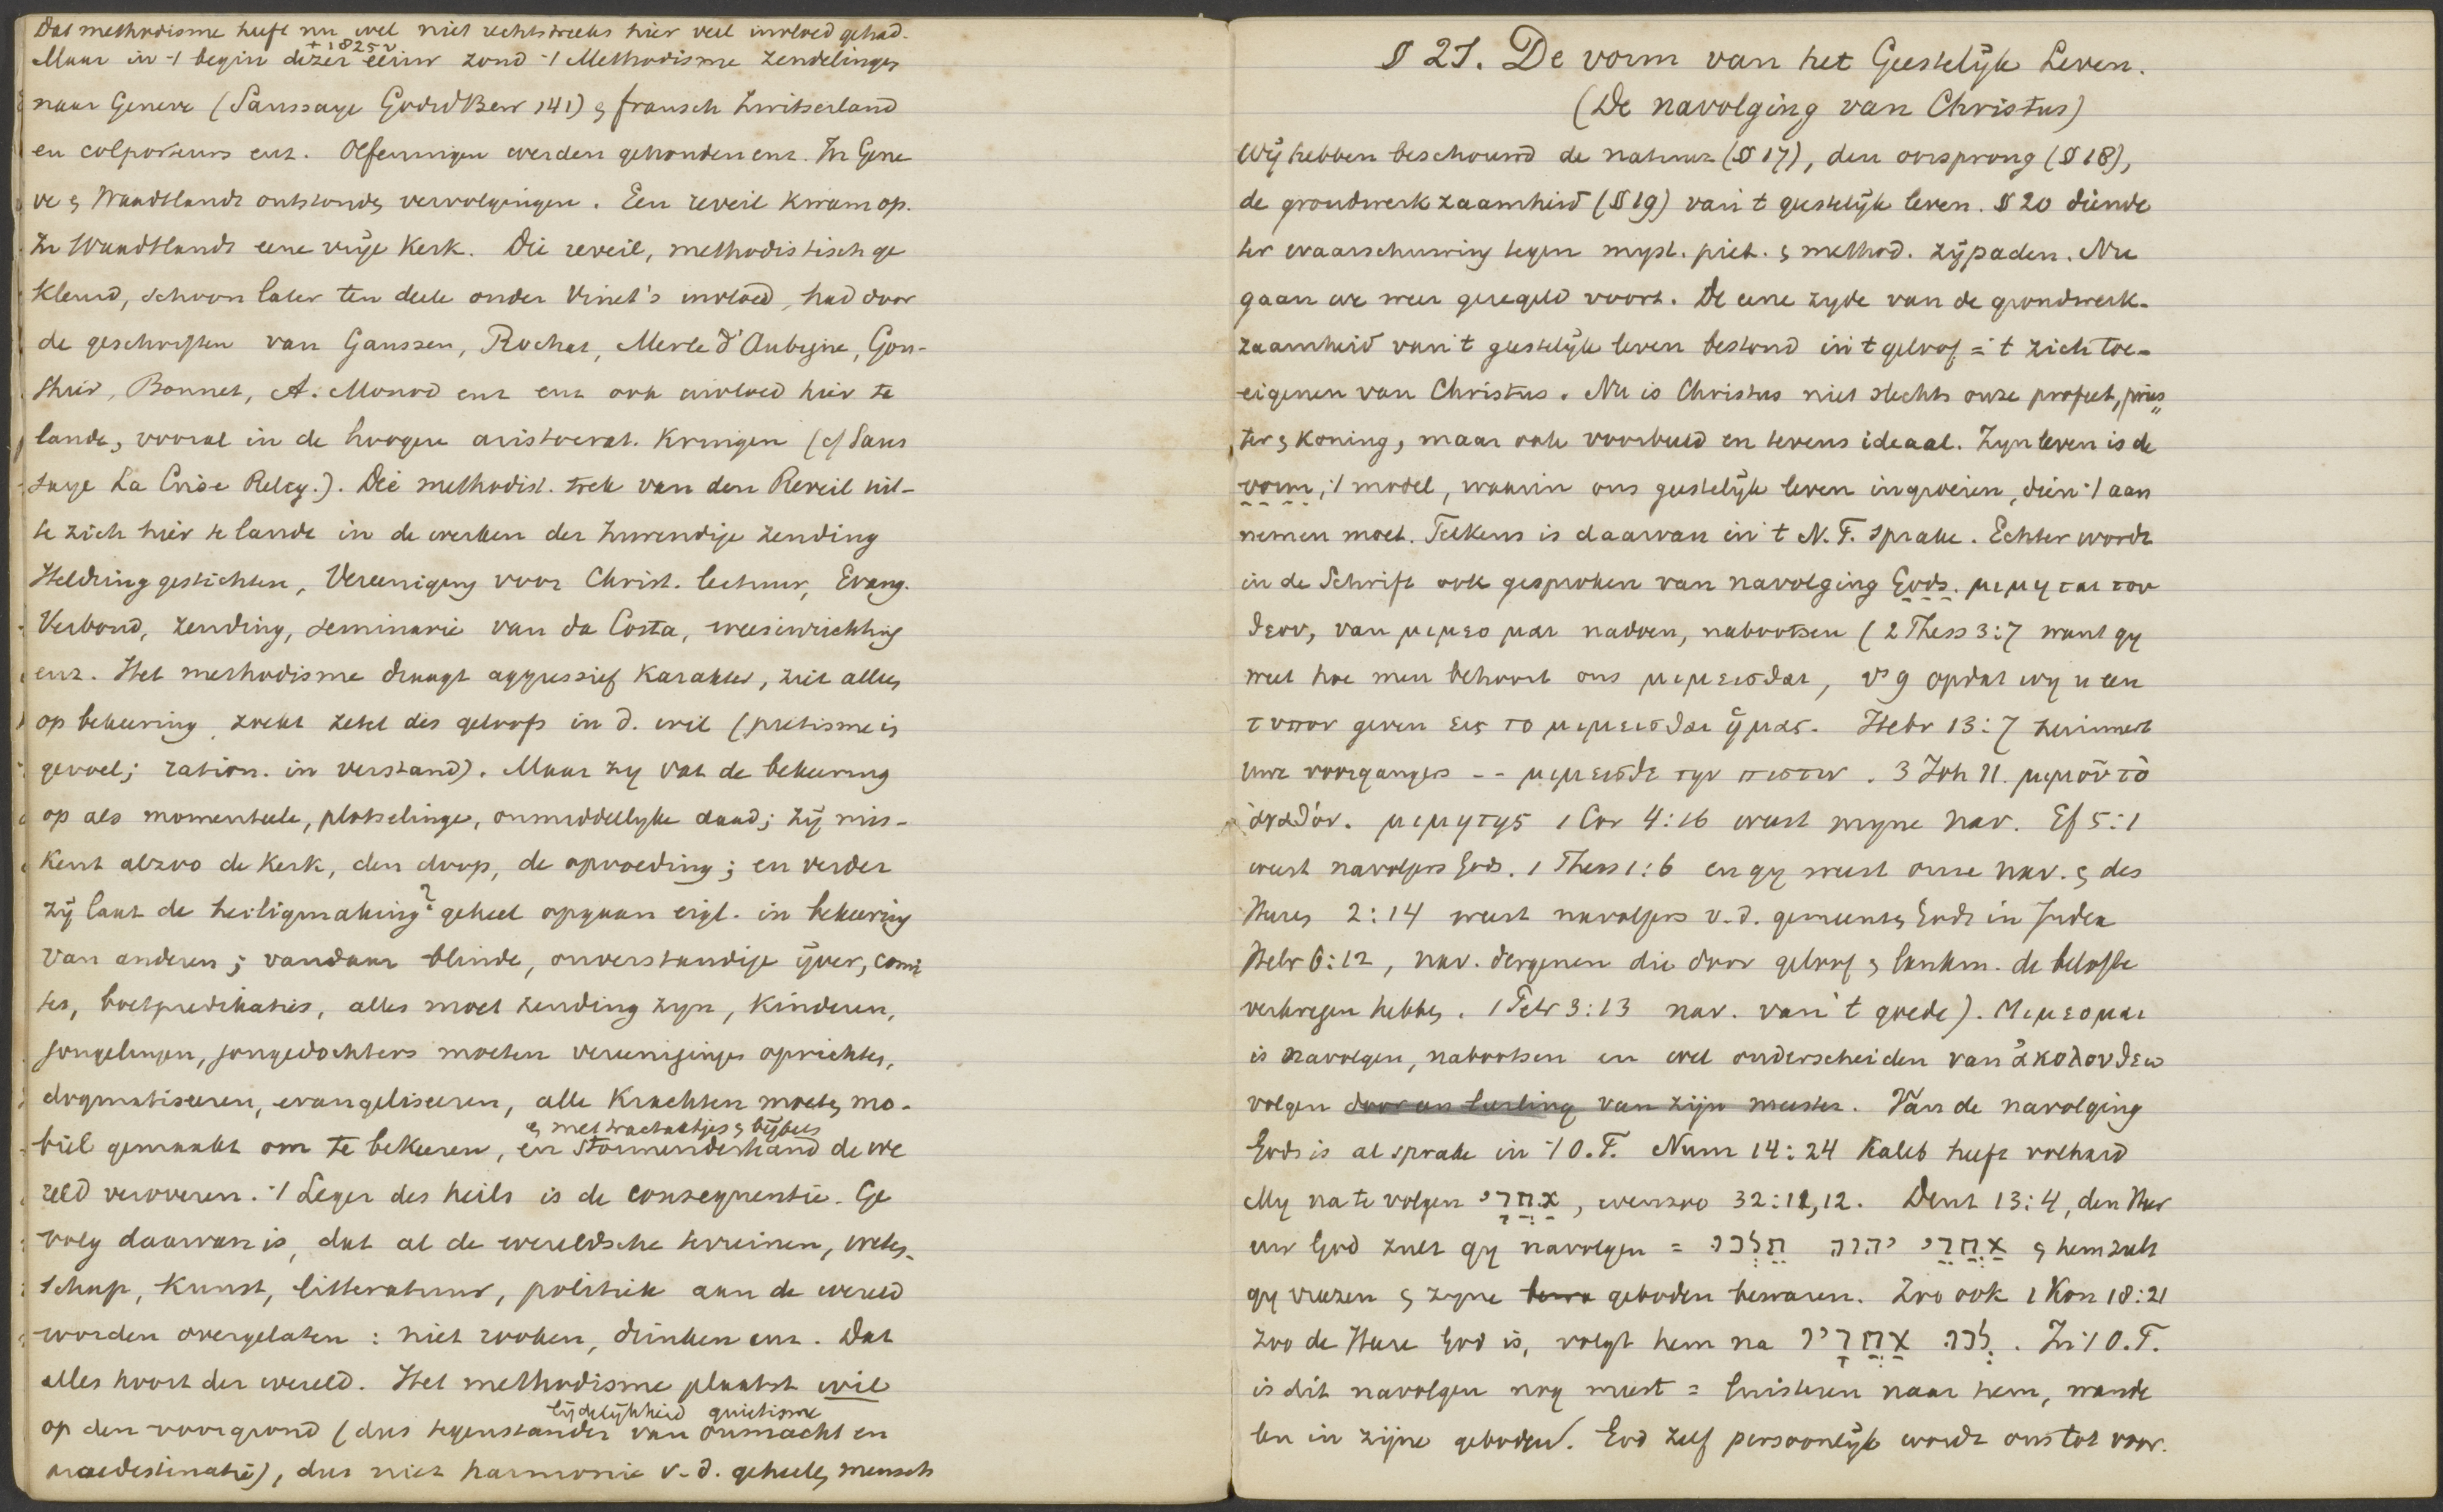 Dat methodisme heeft nu wel niet rechtstreeks hier veel invloed gehad.
± 1825 v
Maar in 't begin dezer eeuw zond 't Methodisme zendelingen
naar Geneve (Saussaye GodsdBew 141) & fransch Zwitserland
en colporteurs enz. Oefeningen werden gehouden enz. In Gene
ve & Waadtlandt ontstonden vervolgingen. Een reveil kwam op.
In Waadtlandt eene vrije Kerk. Die reveil, methodistisch ge
kleurd, schoon later ten deele onder Vinet's invloed, had door
de geschriften van Gaussen, Rochat, Merle d'Aubigne, Gon-
thier, Bonnet, A. Monod enz enz ook invloed hier te
lande, vooral in de hoogere aristocrat. Kringen (cf Saus
saye La Crise Relig.). Die methodist. trek van den Reveil uit-
te zich hier te lande in de werken der Inwendige zending
Heldring gestichten, Vereeniging voor Christ. lectuur, Evang.
Verbond, zending, seminarie van da Costa, weesinrichting
enz. Het methodisme draagt aggressief Karakter, zet alles
op bekeering, zoekt zetel des geloofs in d. wil (pietisme is
gevoel; ration. in verstand). Maar zy vat de bekeering
op als momenteele, plotselinge, onmiddellyke daad; zij mis-
kent alzoo de Kerk, den doop, de opvoeding; en verder
zij laat de heiligmaking? geheel opgaan eigl. in bekeering
van anderen; vandaar blinde, onverstandige ijver, comi
tes, boetpredikaties, alles moet zending zyn, Kinderen,
jongelingen, jongedochters moeten vereenigingen oprichten,
dogmatiseeren, evangeliseeren, alle Krachten moeten mo-
& met tractaatjes & bijbels
biel gemaakt om te bekeeren, en stormenderhand de we
reld veroveren. 't Leger des heils is de consequentie. Ge
volg daarvan is, dat al de wereldsche terreinen, weten-
schap, Kunst, litteratuur, politiek aan de wereld
worden overgelaten: niet rooken, drinken enz. Dat
alles hoort der wereld. Het methodisme plaatst wil
lijdelijkheid quietisme
op den voorgrond (dus tegenstander van onmacht en
praedestinatie), dus niet harmonie v. d. geheelen mensch
§ 21. De vorm van het Geestelijk Leven.
(De navolging van Christus)
Wij hebben beschouwd de natuur (§ 17), den oorsprong (§ 18),
de grondwerkzaamheid (§ 19) van 't geestelijk leven. § 20 diende
ter waarschuwing tegen myst. piet. & method. zijpaden. Nu
gaan we weer geregeld voort. De eene zyde van de grondwerk-
zaamheid van 't geestelijk leven bestond in 't geloof = 't zich toe-
eigenen van Christus. Nu is Christus niet slechts onze profeet, pries
ter & koning, maar ook voorbeeld en levens ideaal. Zyn leven is de
vorm, 't model, waarin ons geestelijk leven ingroeien, dien 't aan
nemen moet. Telkens is daarvan in 't N. T. sprake. Echter wordt
in de Schrift ook gesproken van navolging Gods. μιμηται του
θεου, van μιμεομαι nadoen, nabootsen (2 Thess 3:7 want gy
weet hoe men behoort ons μιμεισθαι, vs 9 opdat wy u een
τυπον geven εις το μιμεισθαι ἡμας. Hebr 13:7 herinnert
uwe voorgangers -- μιμεισθε την πιστιν. 3 Joh 11. μιμοῦ τὸ
ἀγαθόν. μιμητης 1 Cor 4:16 weest myne nav. Ef 5:1
weest navolgers Gods. 1 Thess 1:6 en gy weest onze nav. & des
Heeren 2:14 weest navolgers v. d. gemeenten Gods in Judea
Hebr 6:12, nav. dergenen die door geloof & lankm. de belofte
verkregen hebben. 1 Petr 3:13 nav. van 't goede). Μιμεομαι
is navolgen, nabootsen en wel onderscheiden van ἀκολουθεω
volgen door en leerling van zijn meester. Van de navolging
Gods is al sprake in 't O.T. Num 14:24 Kaleb heeft volhard
My na te volgen אַחֲרָי, evenzoo 32:11,12. Deut 13:4, den Heer
uw God zult gy navolgen = אַחֲרֵי יהוה תֵּלֵכוּ & hem zult
gy vreezen & zyne geboden bewaren. Zoo ook 1 Kon 18:21
zoo de Heere God is, volgt hem na לְכוּ אַחֲרָיו. In 't O.T.
is dit navolgen nog meest = luisteren naar hem, wande
len in zijne geboden. God zelf persoonlijk wordt ons tot voor.